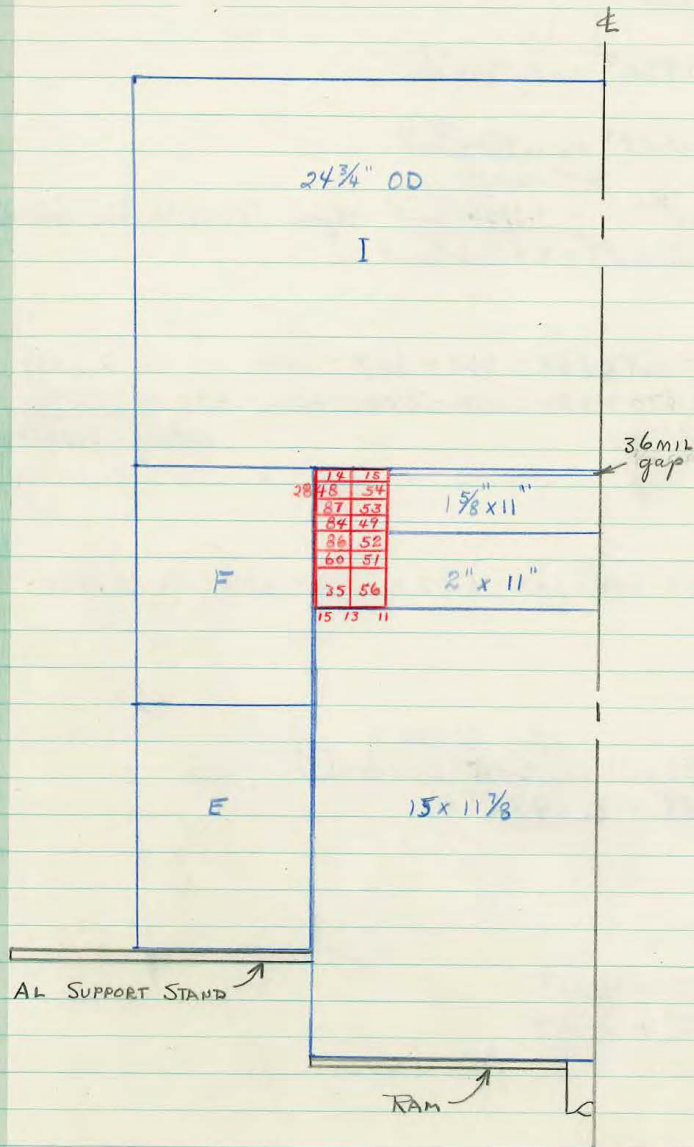 ℄
24 3/4" OD
I
36 MIL
gap
14 15
28 48 54
87 53
84 49
86 52
60 51
35 56
15 13 11
1 5/8" x 11"
2" x 11"
F
E
15 x 11 7/8
AL SUPPORT STAND
RAM